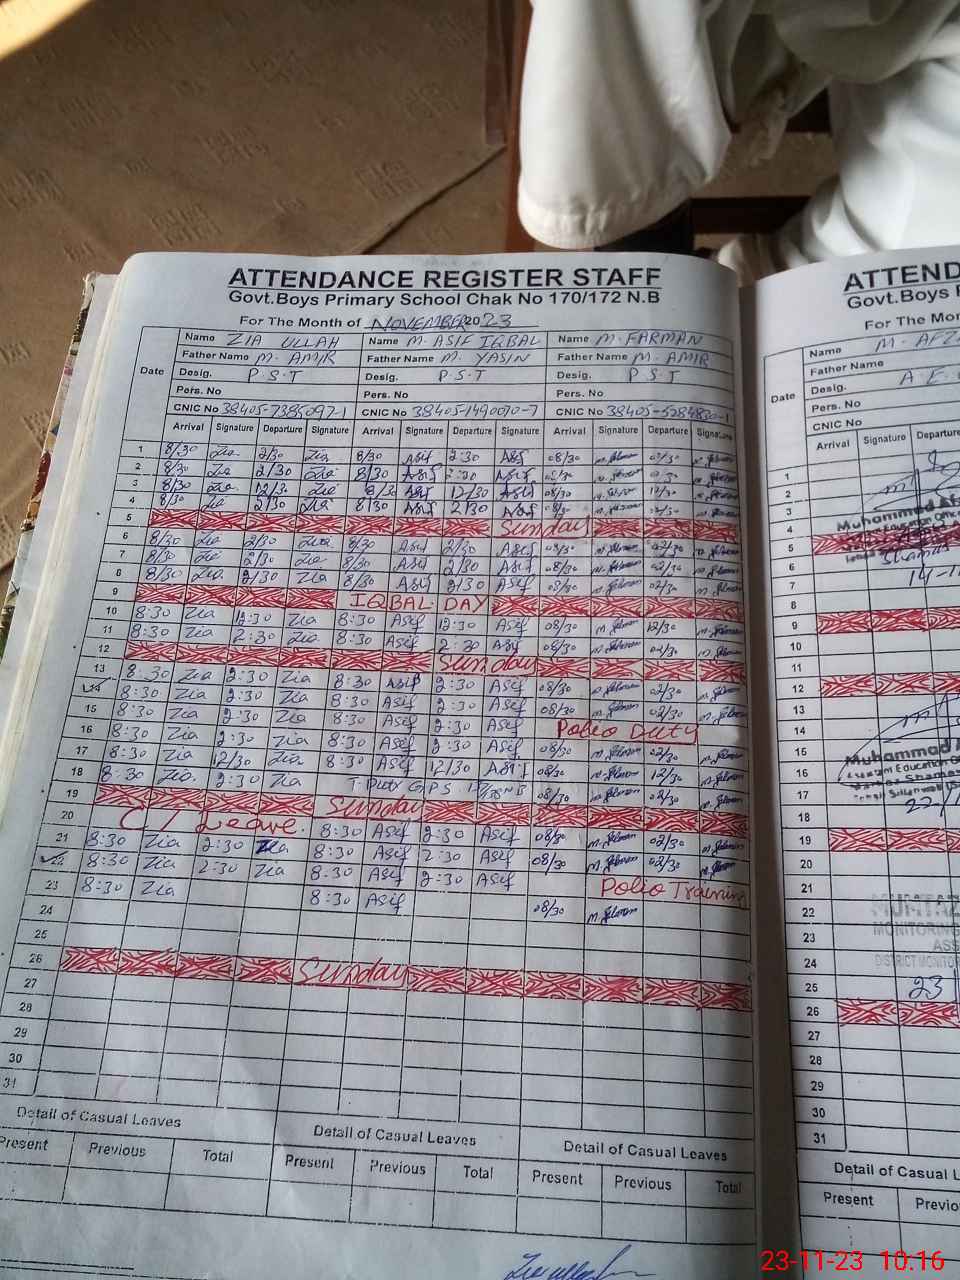 ATTENDANCE REGISTER STAFF
Govt.Boys Primary School Chak No 170/172 N.B
For The Month of NOVEMBER 2023
Date
Name ZIA ULLAH Name M. ASIF IQBAL Name M. FARMAN
Father Name M. AMIR Father Name M. YASIN Father Name M. AMIR
Desig. P.S.T Desig. P.S.T Desig. P.S.T
Pers. No Pers. No Pers. No
CNIC No 38405-7385097-1 CNIC No 38405-1490070-7 CNIC No
Arrival Signature Departure Signature Arrival Signature Departure Signature Arrival Signature Departure Signature
1 8/30 Zia 2/30 Zia 8/30 Asif 2:30 Asif 08/30
2 8/30 Zia 2/30 Zia 8/30 Asif 2:30 Asif
3 8/30 Zia 12/30 Zia 8/30 Asif 12/30 Asif 08/30 12/30
4 8/30 Zia 2/30 Zia 8/30 Asif 2/30 Asif 08/30
5 Sunday
6 8/30 Zia 2/30 Zia 8/30 Asif 2/30 Asif 08/30 02/30
7 8/30 Zia 2/30 Zia 8/30 Asif 2/30 Asif 08/30 02/30
8 8/30 Zia 2/30 Zia 8/30 Asif 2/30 Asif 08/30 02/30
9 IQBAL DAY
10 8:30 Zia 12:30 Zia 8:30 Asif 12:30 Asif 08/30 12/30
11 8:30 Zia 2:30 Zia 8:30 Asif 2:30 Asif 08/30 02/30
12 Sunday
13 8:30 Zia 2:30 Zia 8:30 Asif 2:30 Asif 08/30 02/30
14 8:30 Zia 2:30 Zia 8:30 Asif 2:30 Asif 08/30 02/30
15 8:30 Zia 2:30 Zia 8:30 Asif 2:30 Asif Polio Duty
16 8:30 Zia 2:30 Zia 8:30 Asif 2:30 Asif 08/30 02/30
17 8:30 Zia 12/30 Zia 8:30 Asif 12/30 Asif 08/30 12/30
18 8:30 Zia 2:30 Zia T. Duty G.P.S 08/30 02/30
19 Sunday
20 C/Leave. 8:30 Asif 2:30 Asif 08/30 02/30
21 8:30 Zia 2:30 Zia 8:30 Asif 2:30 Asif 08/30 02/30
22 8:30 Zia 2:30 Zia 8:30 Asif 2:30 Asif Polio Training
23 8:30 Zia 8:30 Asif 08/30
24
25
26 Sunday
27
28
29
30
31
Detail of Casual Leaves Detail of Casual Leaves Detail of Casual Leaves
Present Previous Total Present Previous Total Present Previous Total
ATTEND
Govt.Boys P
For The Mo
Date
Name M. AFZ
Father Name
Desig. A. E.
Pers. No
CNIC No
Arrival Signature Departure
1
2
3
4
Muhammad Af
5
6
7
8
9
10
11
12
13
14
15
Muhammad A
16
17
18
19
20
21
22
MUMTAZ
MONITORING
23
ASS
24
DISTRICT MONITO
25 23
26
27
28
29
30
31
Detail of Casual L
Present Previo
23-11-23 10:16